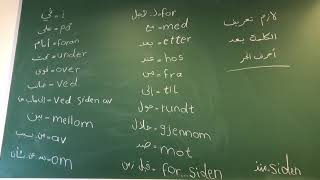 في = i
على = på
أمام = foran
تحت = under
فوق = over
جانب = ved
إلى جانب = ved siden av
بين = mellom
من = av
om
for = لـ، لأجل
مع = med
بعد = etter
عند = hos
من = fra
إلى = til
حول = rundt
خلال = gjennom
ضد = mot
قبل = for...siden
لازم تعريف
الكلمة بعد
أحرف الجر
منذ = siden